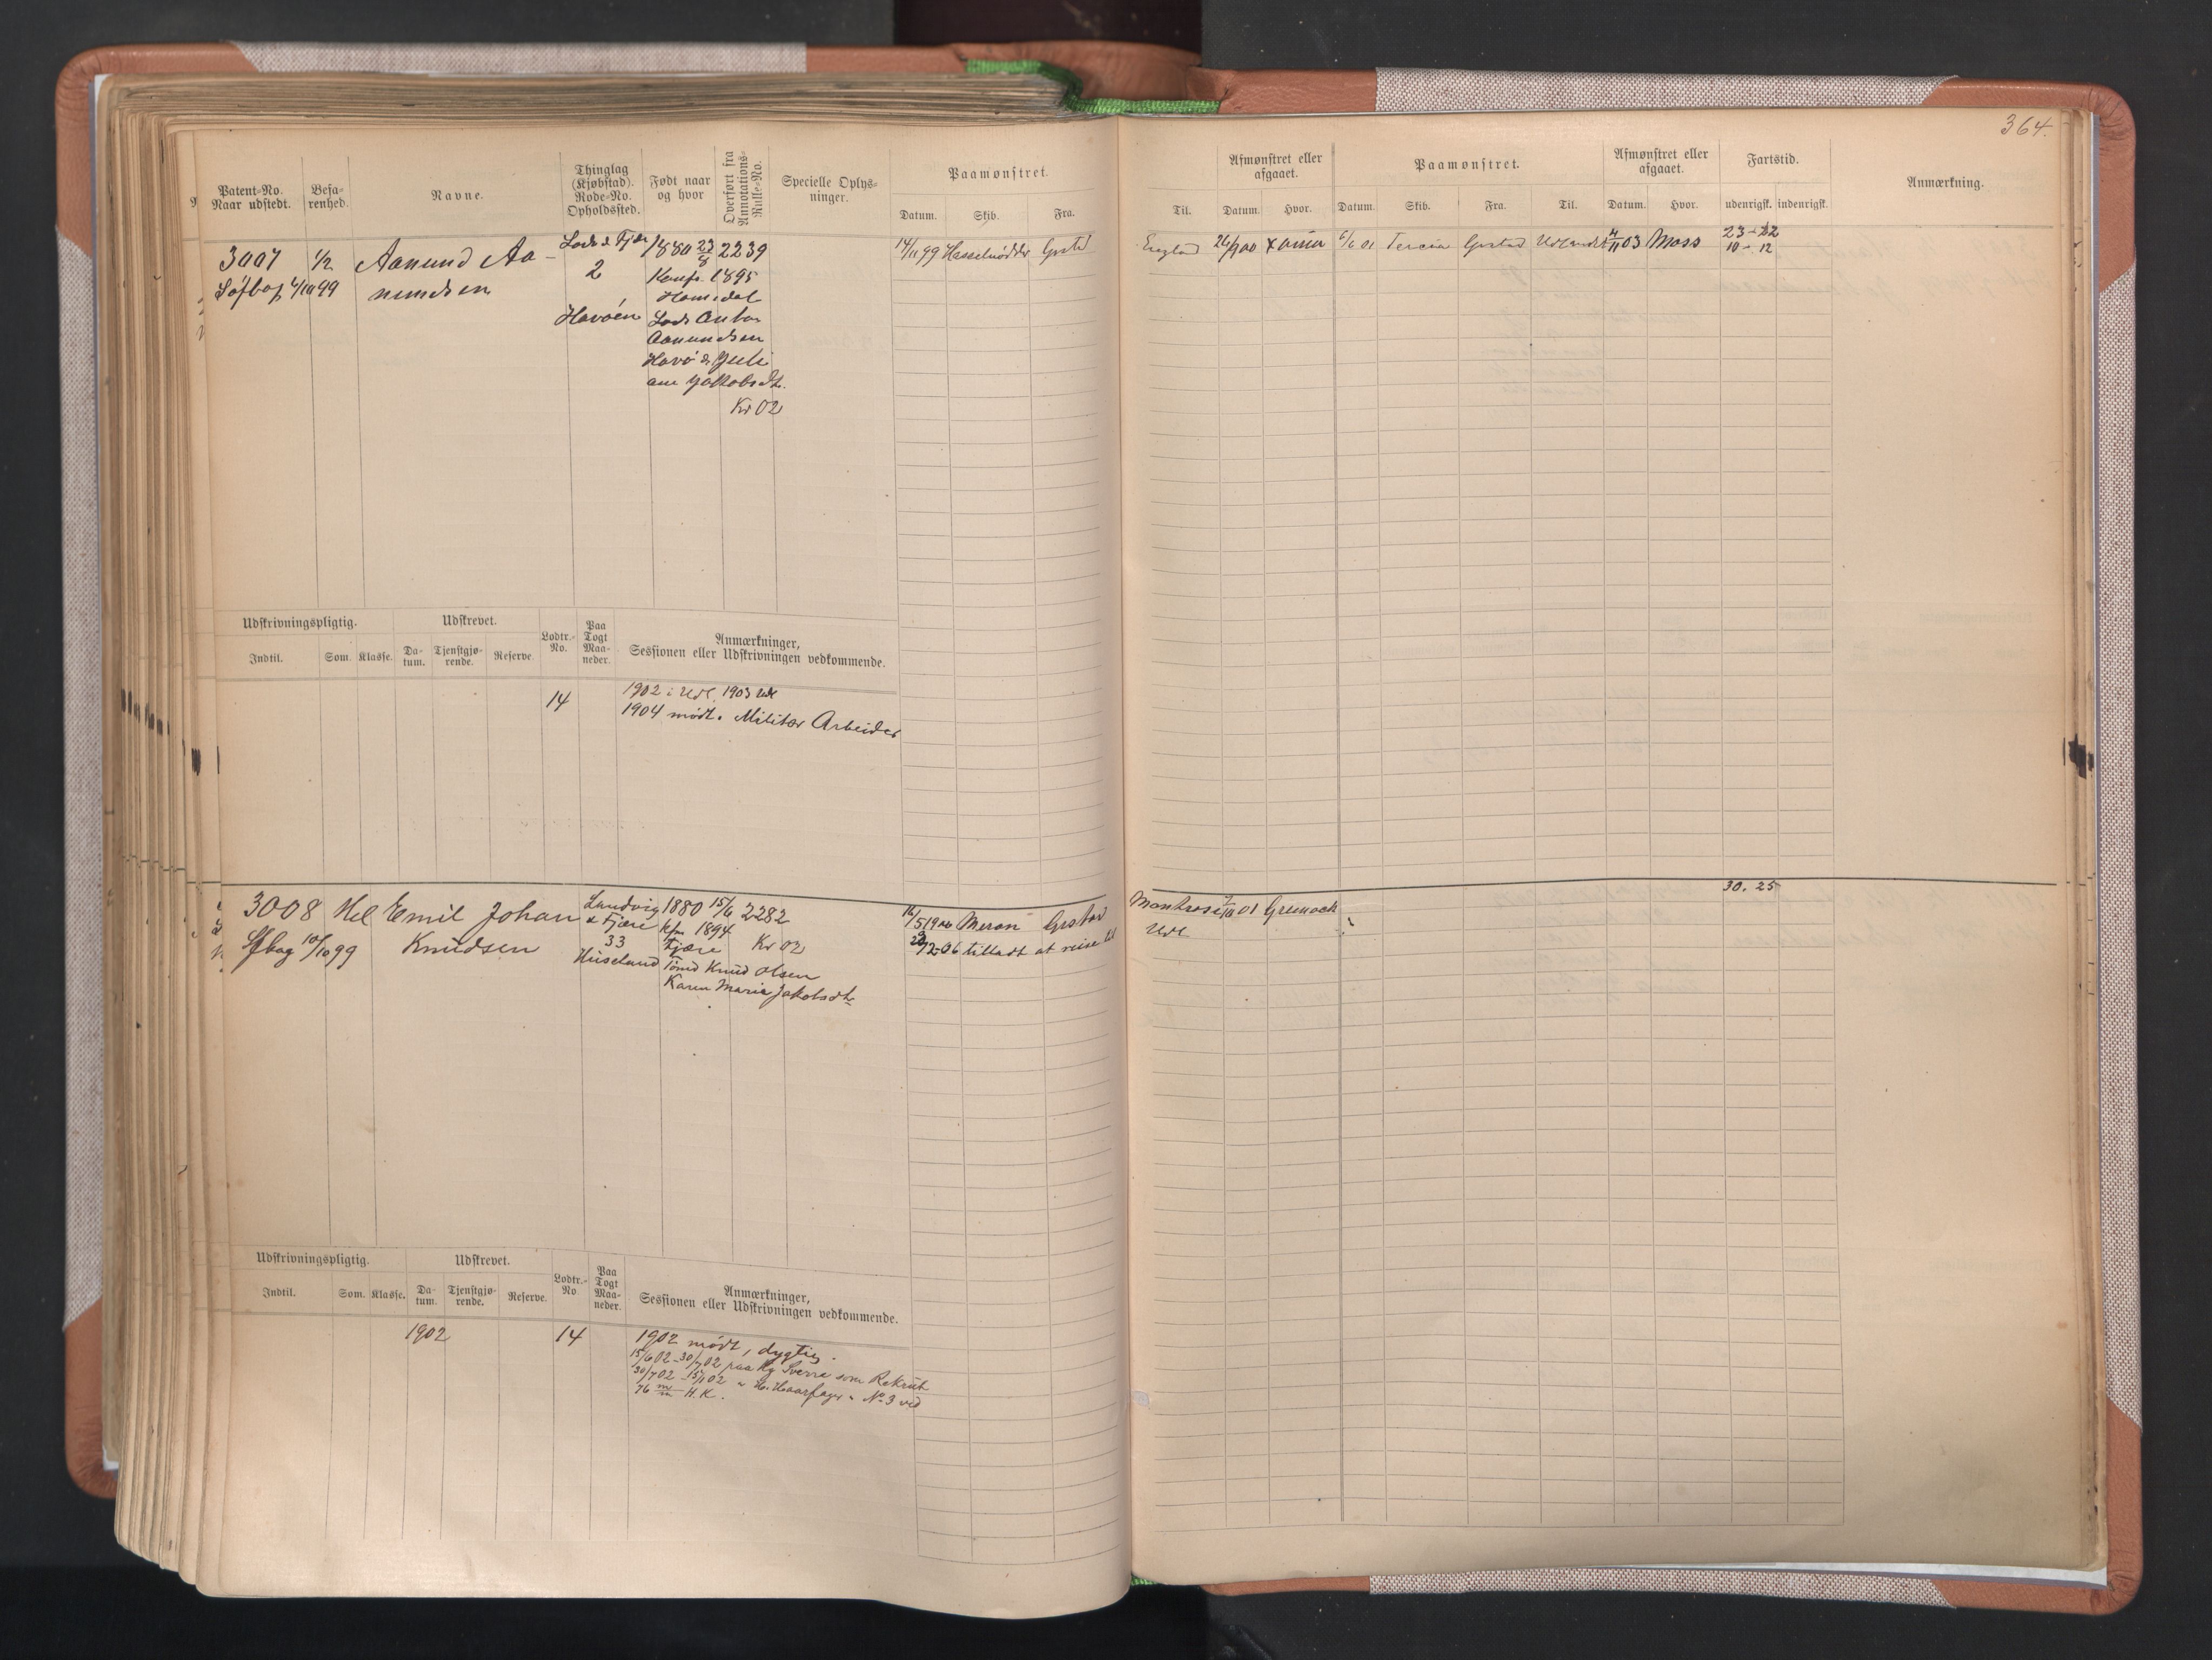 364.
Patent-No.
Naar udstedt.
Befa-
renhed.
Navne.
Thinglag
(Kjøbstad).
Rode-No.
Opholdssted.
Født naar
og hvor
Overført fra
Annotations-
Rulle-No.
Specielle Oplys-
ninger.
Paamønstret.
Datum. Skib. Fra.
Til.
Afmønstret eller
afgaaet.
Datum. Hvor.
Paamønstret.
Datum. Skib. Fra. Til.
Afmønstret eller
afgaaet.
Datum. Hvor.
Fartstid.
udenrigsk. indenrigsk.
Anmærkning.
3007 1/2 Aanund Aa-
nundsen
99
2
Havøen
1880 23/8 2239
Konf. 1895
Homedal
Lods
Aanundsen
Havø & Juli
ane Jakobsdt.
Kr 02
14/11 99
England
6/6 01 Tercia Grstad
03 Moss
10 - 12
Udskrivningspligtig.
Indtil. Som. Klasse.
Udskrevet.
Da-
tum.
Tjenstgjø-
rende.
Reserve.
Lodtr.-
No.
Paa
Togt
Maa-
neder.
Anmærkninger,
Sessionen eller Udskrivningen vedkommende.
14
1902 i Udl. 1903 Udl
1904 mødt. Militær Arbeider
3008 Hel Emil Johan
Knudsen
Sfbog 10/10 99
Landvig
& Fjære
33
Huseland
1880 15/6 2282
kfm 1894
Fjære Kr 02
Tømd Knud Olsen
Karen Marie Jakobsdt.
Grstad
06 tilladt at reise til
Montrose 01 Greenock
Udl
30. 25
Udskrivningspligtig.
Indtil. Som. Klasse.
Udskrevet.
Da-
tum.
Tjenstgjø-
rende.
Reserve.
Lodtr.-
No
Paa
Togt
Maa-
neder.
Anmærkninger,
Sessionen eller Udskrivningen vedkommende.
1902 14
1902 mødt, dygtig.
15/6 02 - 30/7 02 paa Kg Sverre som Rekrut
30/7 02 - 02 " H. Haarfager " No 3 ved
76 m/m H.K.